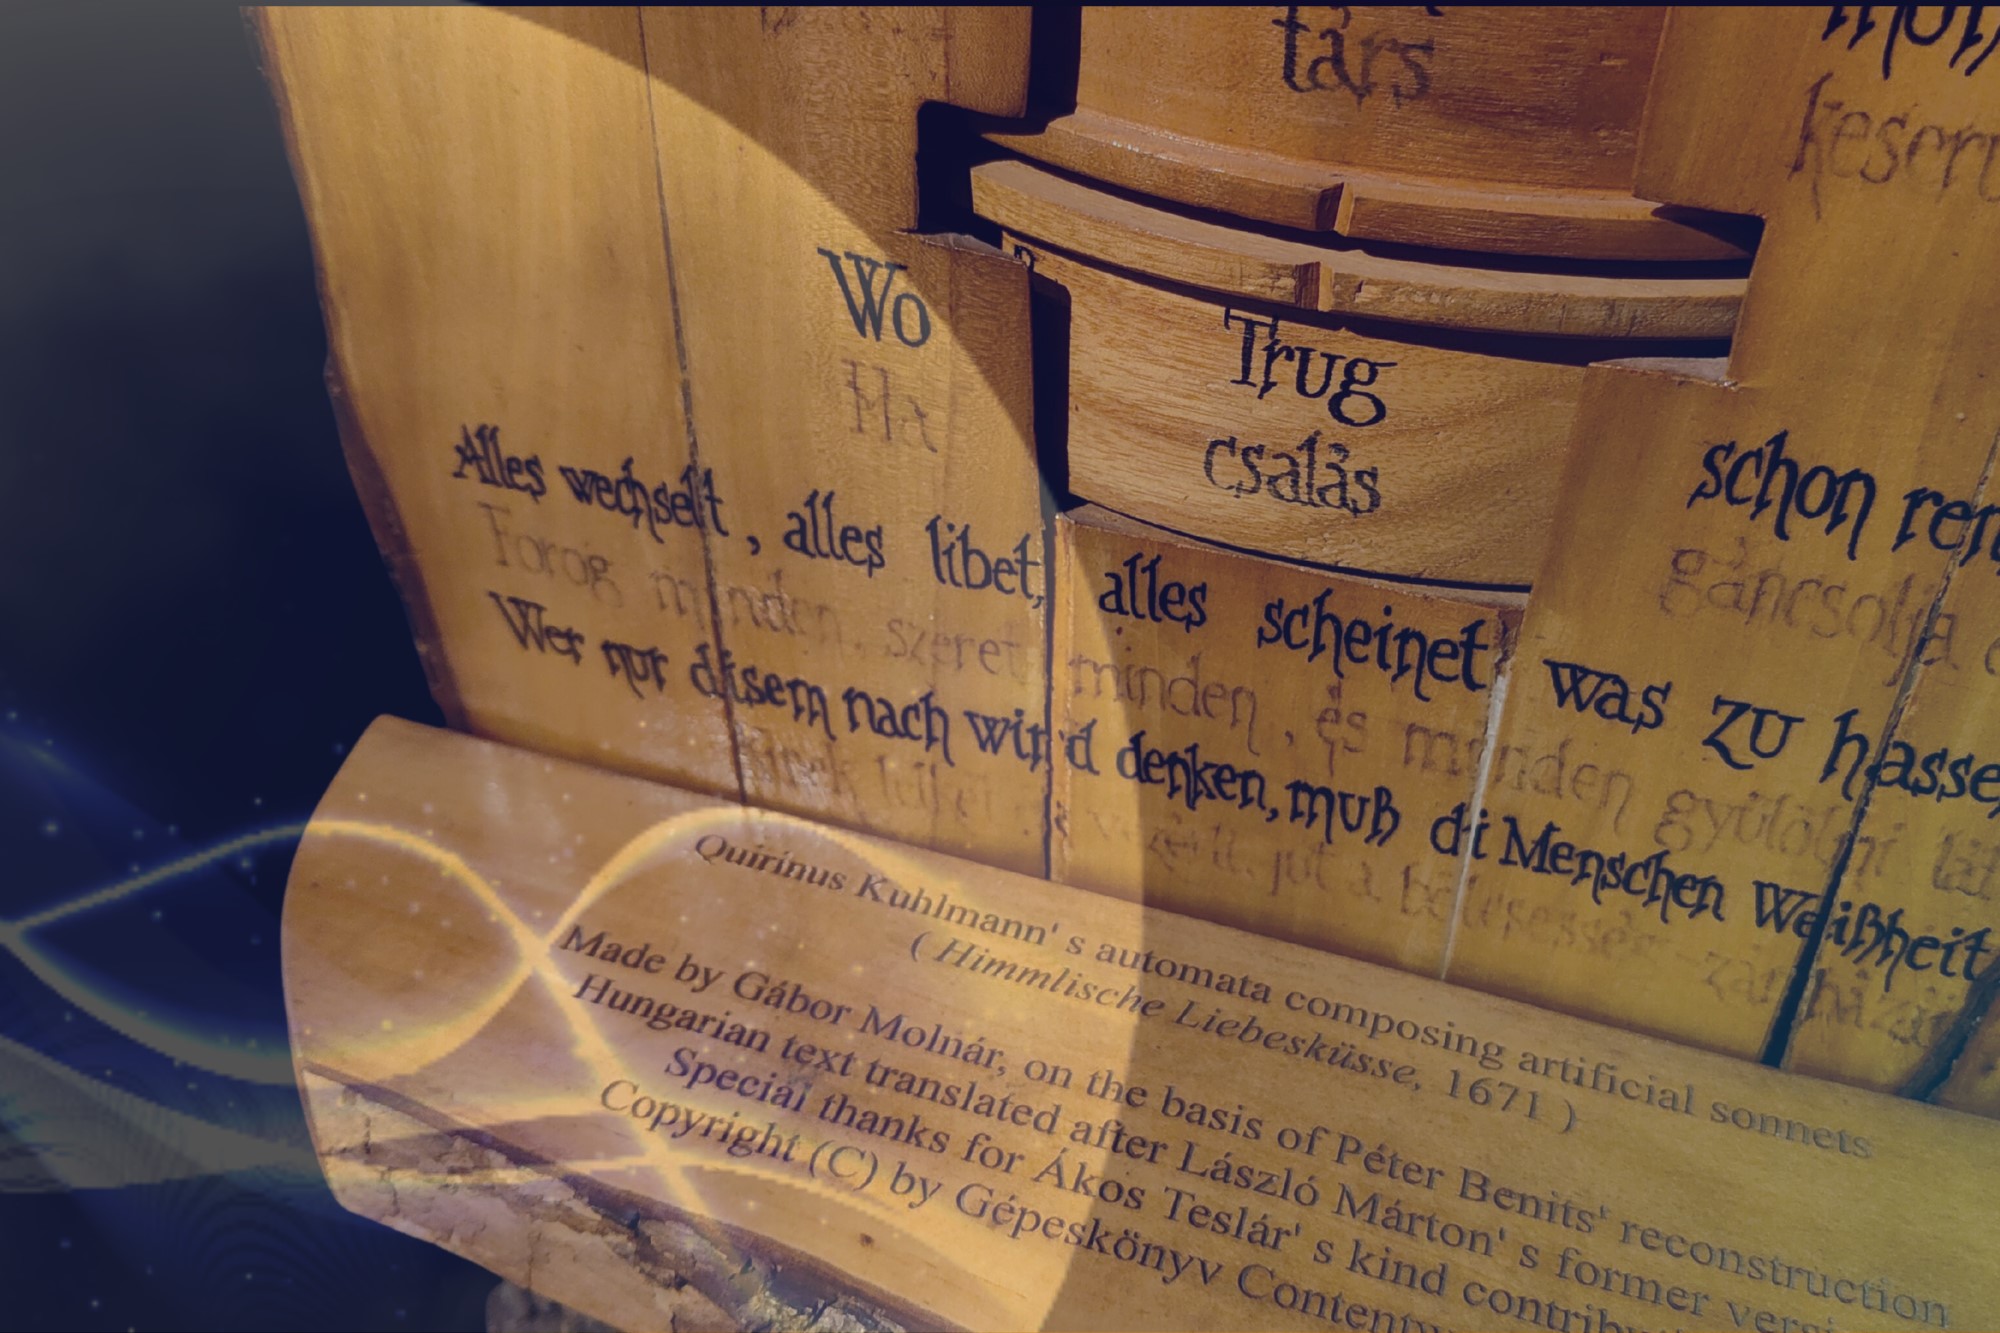 társ
keserű
Wo Trug schon
Ha csalás gáncsolja
Alles wechselt, alles libet, alles scheinet was zu hasse
Forog minden, szeret minden, és minden gyűlölni
Wer nur disem nach wird denken, muß di Menschen Weißheit
Quirinus Kuhlmann' s automata composing artificial sonnets
( Himmlische Liebesküsse, 1671 )
Made by Gábor Molnár, on the basis of Péter Benits' reconstruction
Hungarian text translated after László Márton' s former
Special thanks for Ákos Teslár' s kind
Copyright (C) by Gépeskönyv